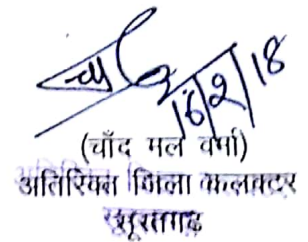 16/2/18
(चाँद मल वर्मा)
अतिरिक्त जिला कलक्टर
सूरतगढ़